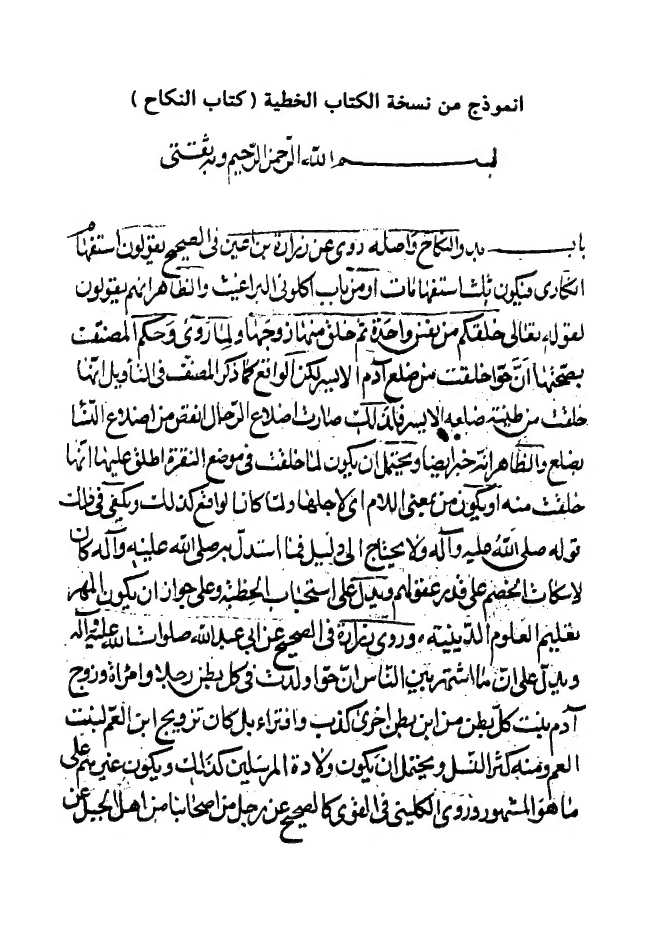 انموذج من نسخة الكتاب الخطية ( كتاب النكاح )
بسم الله الرّحمن الرّحيم وبه ثقتى
باب بدو النكاح واصله روى عن زرارة بن اعين فى الصحيح يقولون استفهام
انكارى فيكون ثلث استفهامات او من باب اكلونى البراغيث والظاهر انهم يقولون
لقوله تعالى خلقكم من نفس واحدة ثم خلق منها زوجها ولما روى وحكم المصنف
بصحتها انّ حوا خلقت من ضلع آدم الايسر لكن الواقع كما ذكر المصنف فى التأويل انها
خلقت من طينة ضلعه الايسر فلذلك صارت اضلاع الرّجال انقص من اضلاع النسا
بضلع والظاهر انه خبر ايضا ويحتمل ان يكون لما خلقت فى موضع النقرة اطلق عليها انها
خلقت منه او يكون من بمعنى اللام اى لاجلها ولما كان الواقع كذلك ويكفى فى ذلك
قوله صلى الله عليه وآله ولا يحتاج الى دليل فما استدلّ به صلى الله عليه وآله كان
لاسكات الخصم على قدر عقولهم ويدلّ على استحباب الخطبة وعلى جواز ان يكون المهر
تعليم العلوم الدينية وروى زرارة فى الصحيح عن ابى عبد الله صلوات الله عليه وآله
ويدلّ على انّ ما اشتهر بين النّاس انّ حوا ولدت فى كل بطن رجلا وامراة وزوج
آدم بنت كلّ بطن من ابن بطن اخرى كذب وافتراء بل كان تزويج ابن العم لبنت
العم ومنه كثر النسل ويحتمل ان يكون ولادة المرسلين كذلك ويكون غيرهم على
ما هو المشهور وروى الكلينى فى القوى كالصحيح عن رجل من اصحابنا من اهل الجبل عن